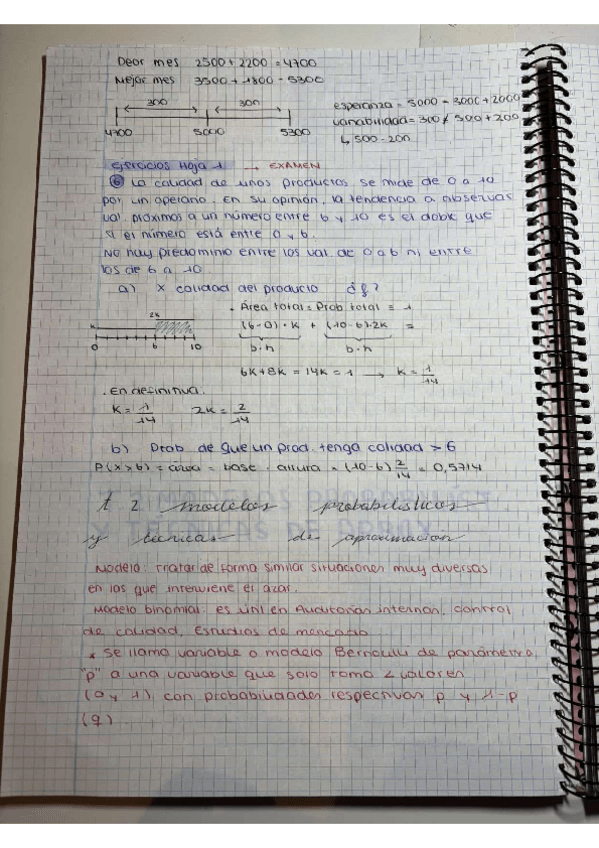 Peor mes 2500 + 2200 = 4700
Mejor mes 3500 + 1800 = 5300
300 300
4700 5000 5300
esperanza = 5000 = 3000 + 2000
variabilidad = 300 ≠ 500 + 200
↳ 500 - 200
Ejercicios Hoja 1 → EXAMEN
⑥ La calidad de unos productos se mide de 0 a 10
por un operario. En su opinión, la tendencia a observar
val. próximos a un número entre 6 y 10 es el doble que
si el número está entre 0 y 6.
No hay predominio entre los val de 0 a 6 ni entre
los de 6 a 10
a) X calidad del producto ¿f?
· Área total = Prob total = 1
(6-0) · k + (10-6) · 2k =
b · h b · h
2k
k
0 6 10
6k + 8k = 14k = 1 → k = 1/14
· En definitiva.
k = 1/14 2k = 2/14
b) Prob de que un prod. tenga calidad > 6
P(x>6) = área = base · altura = (10-6) 2/14 = 0,5714
t 2 modelos probabilísticos
y técnicas de aproximación
Modelo: tratar de forma similar situaciones muy diversas
en las que interviene el azar.
Modelo binomial: es útil en Auditorías internas, control
de calidad, Estudios de mercado
* Se llama variable o modelo Bernoulli de parámetro
"p" a una variable que solo toma 2 valores
(0 y 1), con probabilidades respectivas p y 1-p
(q).